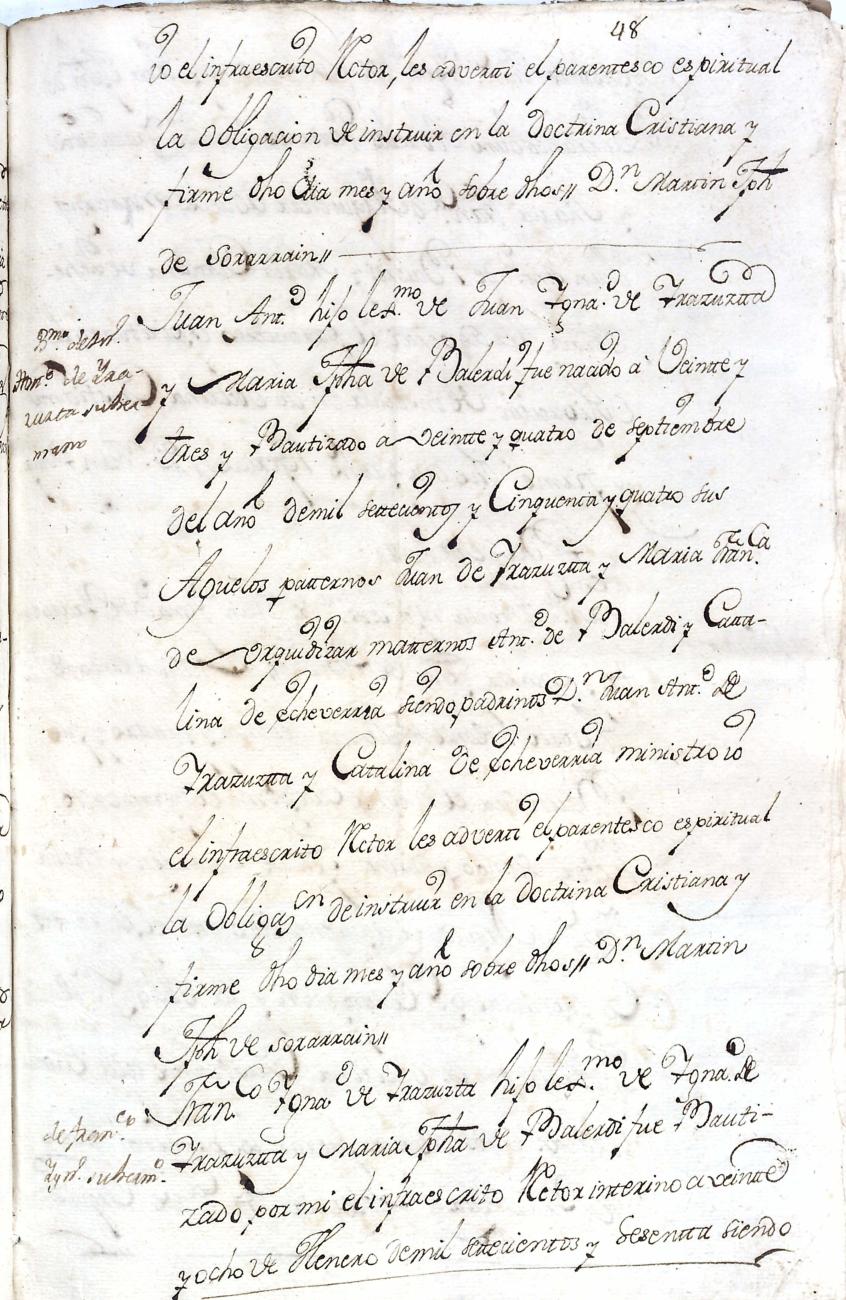 48
io el infraescrito Rctor, les adverti el parentesco espiritual
la obligacion de instruir en la Doctrina Cristiana y
firme dho dia mes y año sobre dhos// Dn Martin Jph
de Sorarrain//
Juan Anto hijo lexmo de Juan Ignao de Irazuzta
y Maria Jpha de Balerdi fue nacido a Veinte y
tres y Bautizado a veinte y quatro de septiembre
del año de mil settecientos y Cinquenta y quatro sus
Aguelos patternos Juan de Irazuzta y Maria Franca
de Urquidizar matternos Anto de Balerdi y Catta-
lina de Echeverria siendo padrinos Dn Juan Anto de
Irazuzta y Catalina de Echeverria ministro io
el infraescrito Rctor les adverti el parentesco espiritual
la Obligaon de instruir en la Doctrina Cristiana y
firme dho dia mes y año sobre dhos// Dn Martin
Jph de Sorarrain//
Franco Ignao de Irazuzta hijo lexmo de Ignao de
Irazuzta y Maria Jpha de Balerdi fue Bauti-
zado por mi el infraescrito Rctor interino a veinte
y ocho de Henero de mil settecientos y Sesentta siendo
Bmo de Jn
Anto de Ira-
zuzta su her-
mano
de Franco
Ign. su hermo